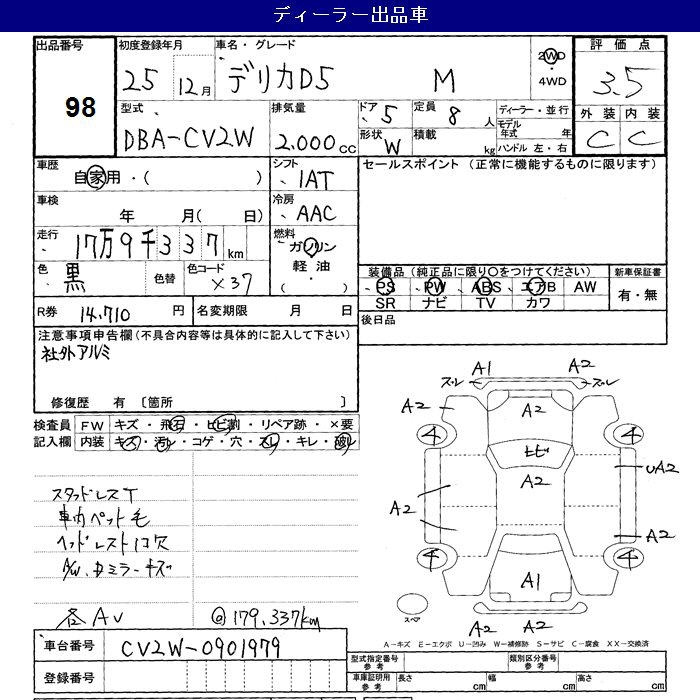 ディーラー出品車
出品番号
98
初度登録年月
25 12月
車名・グレード
デリカD5 M
2WD
・4WD
評価点
3.5
型式
DBA-CV2W
排気量
2.000cc
ドア 5
定員 8 人
形状 W
積載 kg
ディーラー・並行
モデル年式 年
ハンドル 左・右
外装 内装
C C
車歴
自家用・( )
シフト
IAT
セールスポイント (正常に機能するものに限ります)
車検
年 月( 日)
冷房
AAC
走行
17万9千337km
燃料
ガソリン
軽油
( )
色
黒
色替
色コード
X37
装備品(純正品に限り○をつけてください)
PS PW ABS エアB AW
SR ナビ TV カワ
新車保証書
有・無
R券 14.710 円
名変期限 月 日
後日品
注意事項申告欄(不具合内容等は具体的に記入して下さい)
社外アルミ
修復歴 有 〔箇所 〕
検査員記入欄
FW キズ・飛石・ヒビ割・リペア跡・×要
内装 キズ・汚レ・コゲ・穴・スレ・キレ・破レ
スタッドレスT
車内ペット毛
ヘッドレスト1コ欠
A/W、ドミラーキズ
各AV
@179,337km
A1 A2
ズレ ズレ
A2 A2 A2
4 4
ヒビ
A2 UA2
A2
A2
4 4
A1
スペア
A2 A2
A-キズ E-エクボ U-凹み W-補修跡 S-サビ C-腐食 XX-交換済
車台番号 CV2W-0901979
登録番号
型式指定番号
参考
類別区分番号
参考
車庫証明用
参考
長さ cm 幅 cm 高さ cm